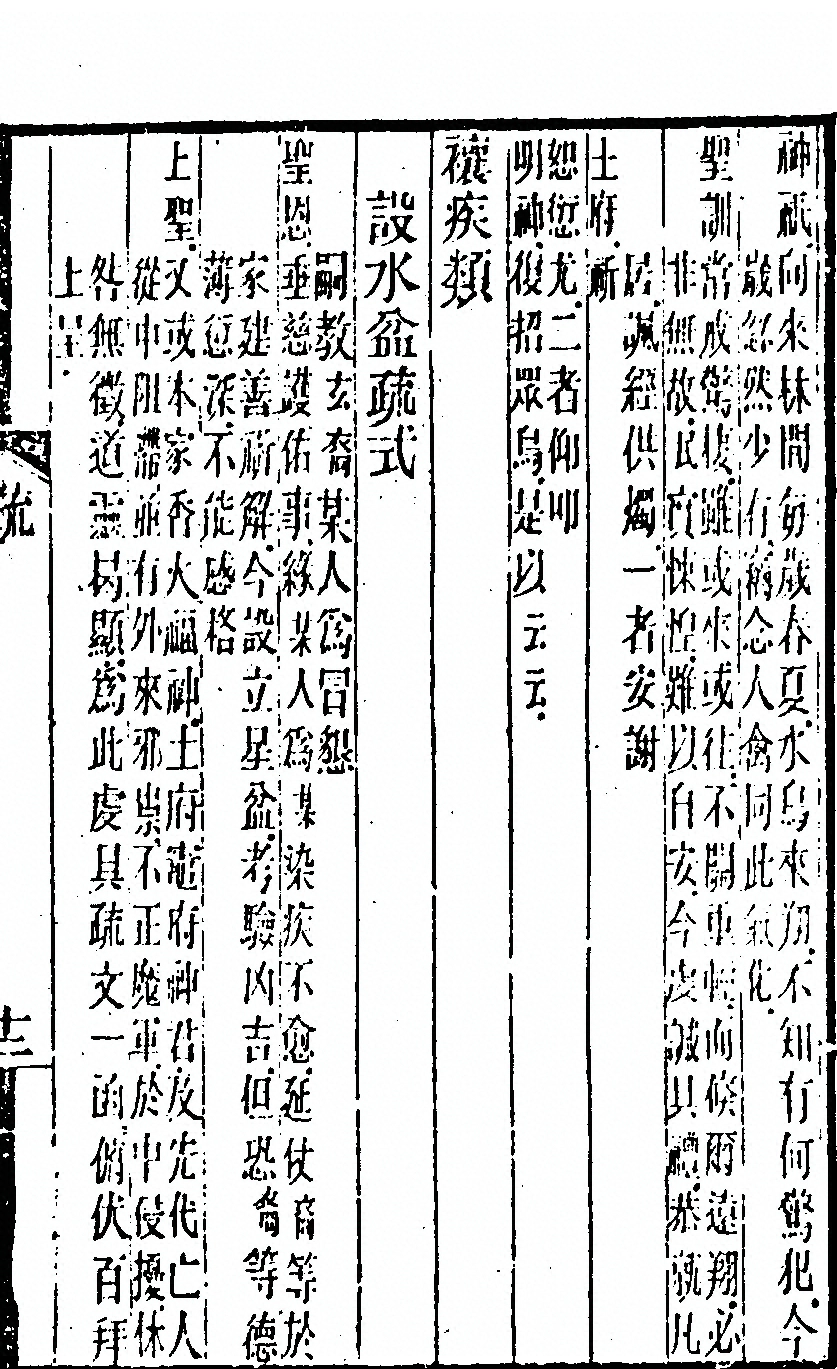 神祇向來林間每歲春夏水鳥來翔不知有何驚犯今
歲忽然少有稱念人禽同此氣化
聖訓常戒驚棲雖或來或往不關重輕而倏爾遠翔必
非無故氓竟悚惶難以自安今虔誠具禮恭就凡
居諷經供燭一者安謝
土府祈
恕愆尤二者仰叩
明神復招眾鳥是以云云
禳疾類
設水盆疏式
嗣教玄裔某人為冒懇
聖恩垂慈護佑事緣某人為某染疾不愈延仗裔等於
家建善祈解今設立星盆考驗凶吉但恐裔等德
薄愆深不能感格
上聖又或本家香火福神土府竈府神君及先代亡人
從中阻滯並有外來邪祟不正魔軍於中侵擾休
咎無徵道靈曷顯為此虔具疏文一函俯伏百拜
上呈
疏
十二